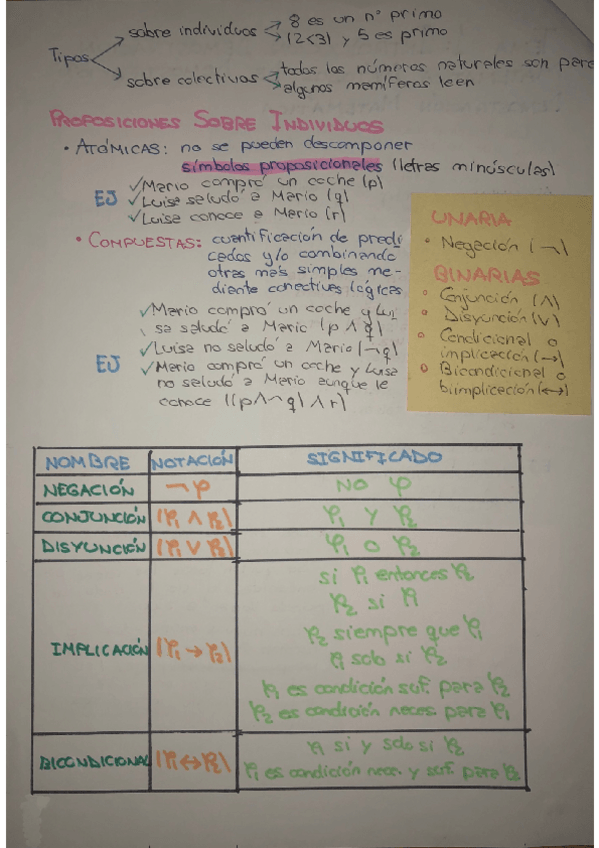 Tipos
sobre individuos
8 es un nº primo
(2<3) y 5 es primo
sobre colectivos
todos los números naturales son pare
algunos mamíferos leen
PROPOSICIONES SOBRE INDIVIDUOS
• ATÓMICAS: no se pueden descomponer
símbolos proposicionales (letras minúsculas)
EJ
✓ Mario compró un coche (p)
✓ Luisa saludó a Mario (q)
✓ Luisa conoce a Mario (r)
• COMPUESTAS: cuantificación de predi
cados y/o combinando
otras más simples me-
diante conectivas lógicas
EJ
✓ Mario compró un coche y Lui
sa saludó a Mario (p ∧ q)
✓ Luisa no saludó a Mario (¬q)
✓ Mario compró un coche y Luisa
no saludó a Mario aunque le
conoce ((p∧¬q)∧r)
UNARIA
• Negación (¬)
BINARIAS
• Conjunción (∧)
• Disyunción (∨)
• Condicional o
implicación (→)
• Bicondicional o
biimplicación (↔)
NOMBRE NOTACIÓN SIGNIFICADO
NEGACIÓN ¬φ NO φ
CONJUNCIÓN (φ₁ ∧ φ₂) φ₁ y φ₂
DISYUNCIÓN (φ₁ ∨ φ₂) φ₁ o φ₂
IMPLICACIÓN (φ₁ → φ₂)
si φ₁ entonces φ₂
φ₂ si φ₁
φ₂ siempre que φ₁
φ₁ solo si φ₂
φ₁ es condición suf. para φ₂
φ₂ es condición neces. para φ₁
BICONDICIONAL (φ₁ ↔ φ₂)
φ₁ si y solo si φ₂
φ₁ es condición nece. y suf. para φ₂